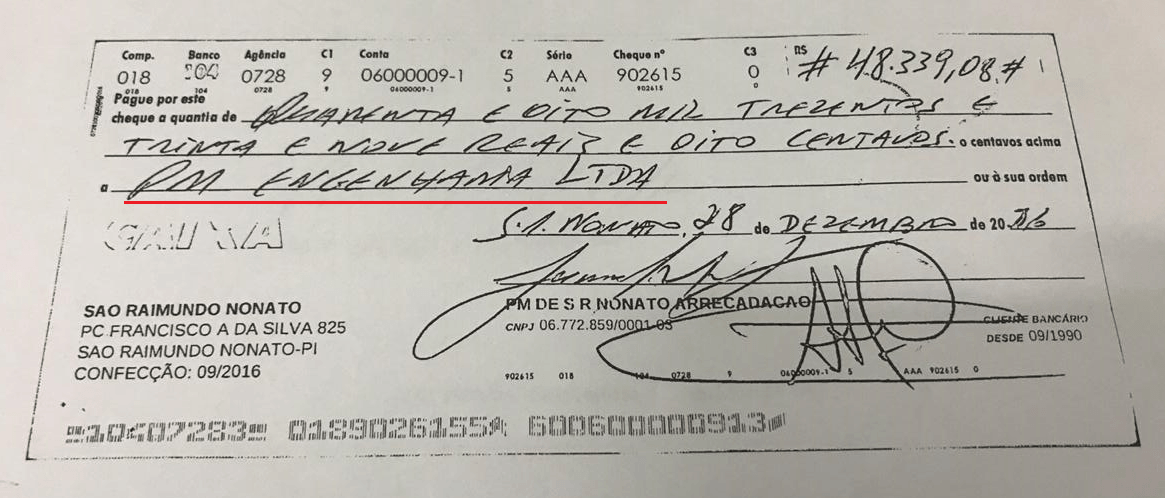 Comp. Banco Agência C1 Conta C2 Série Cheque nº C3 R$
018 104 0728 9 06000009-1 5 AAA 902615 0 # 48.339,08 #
018 104 0728 9 06000009-1 5 AAA 902615 0
Pague por este
cheque a quantia de QUARENTA E OITO MIL TREZENTOS E
TRINTA E NOVE REAIS E OITO CENTAVOS. o centavos acima
a PM ENGENHARIA LTDA ou à sua ordem
CAIXA
S.R. NONATO, 28 de DEZEMBRO de 2016
PM DE S R NONATO ARRECADACAO
CNPJ 06.772.859/0001-03
CLIENTE BANCÁRIO
DESDE 09/1990
SAO RAIMUNDO NONATO
PC.FRANCISCO A DA SILVA 825
SAO RAIMUNDO NONATO-PI
CONFECÇÃO: 09/2016
902615 018 104 0728 9 06000009-1 5 AAA 902615 0
10407283 0189026155 600600000913